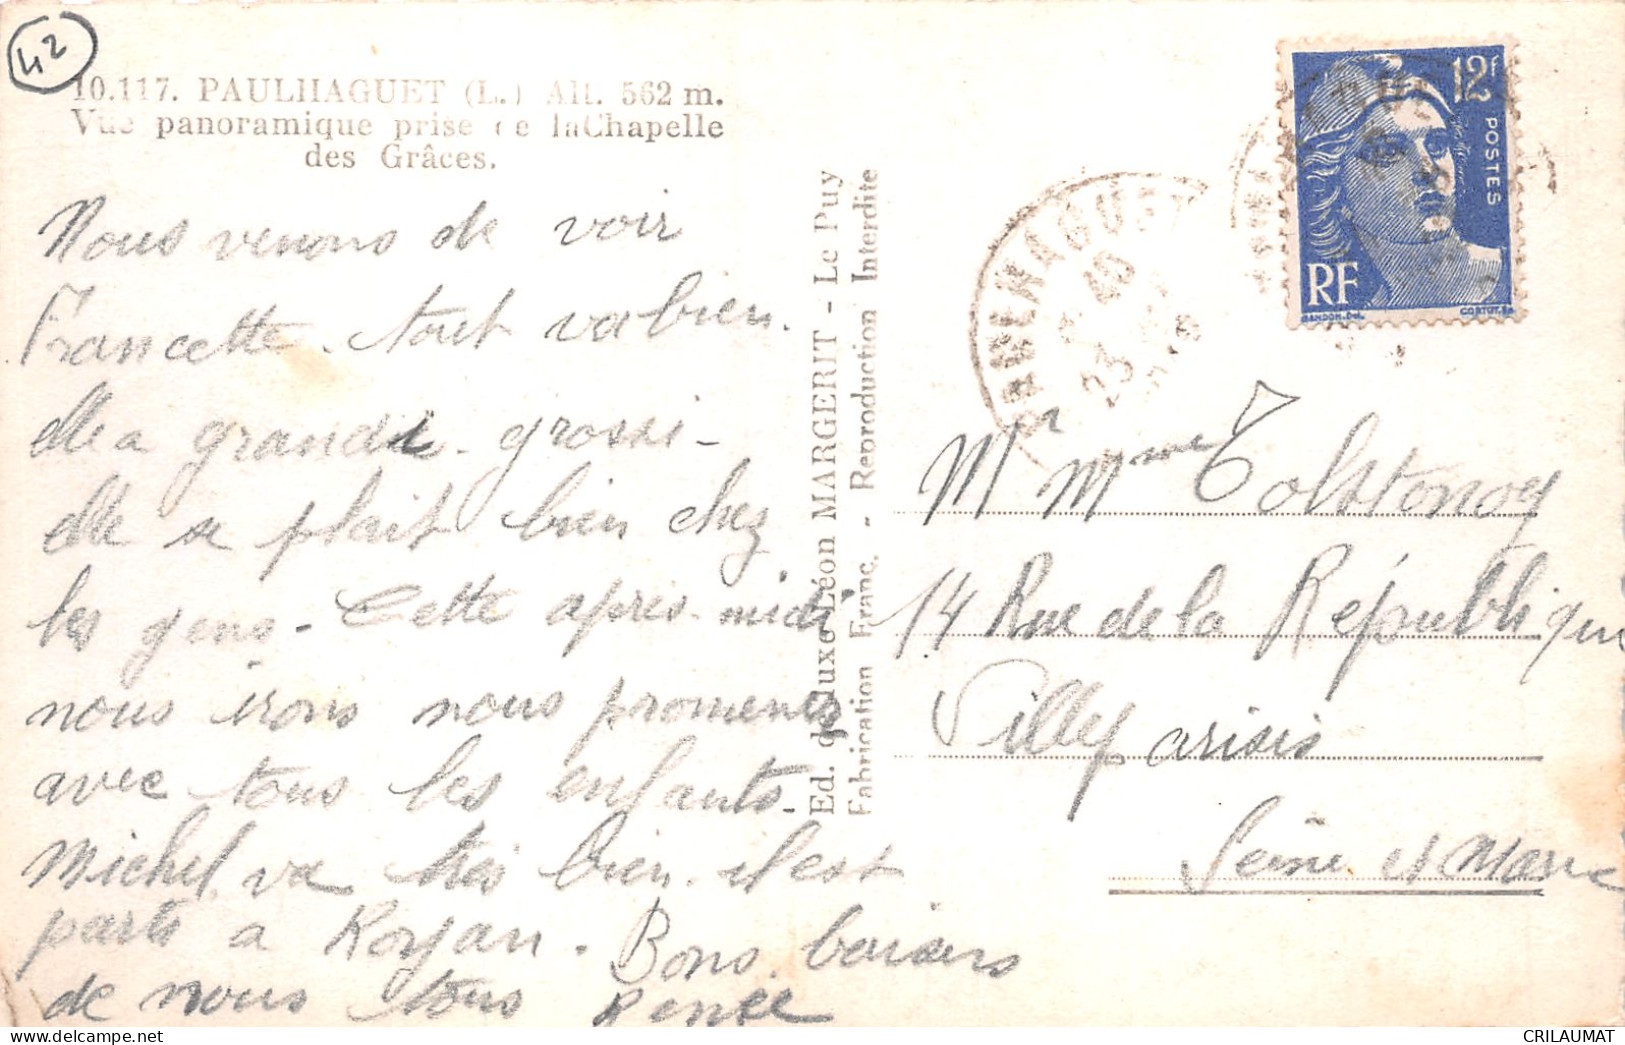 42
10.117. PAULHAGUET (L.) Alt. 562 m.
Vue panoramique prise de la Chapelle
des Grâces.
Nous venons de voir
Francette. tout va bien.
elle a grandi. grossi-
elle se plait bien chez
les gens - Cette après-midi
nous irons nous promener
avec tous les enfants-
Michel va très bien. il est
parti a Royan. Bons baisers
de nous tous Renée
Ed. de luxe Léon MARGERIT - Le Puy
Fabrication Franc. - Reproduction Interdite
PAULHAGUET
12f
POSTES
RF
GANDON.Del.
CORTOT.Sc
Mr Mme Tolstonoy
14 Rue de la République
Villeparisis
Seine et Marne
CRILAUMAT